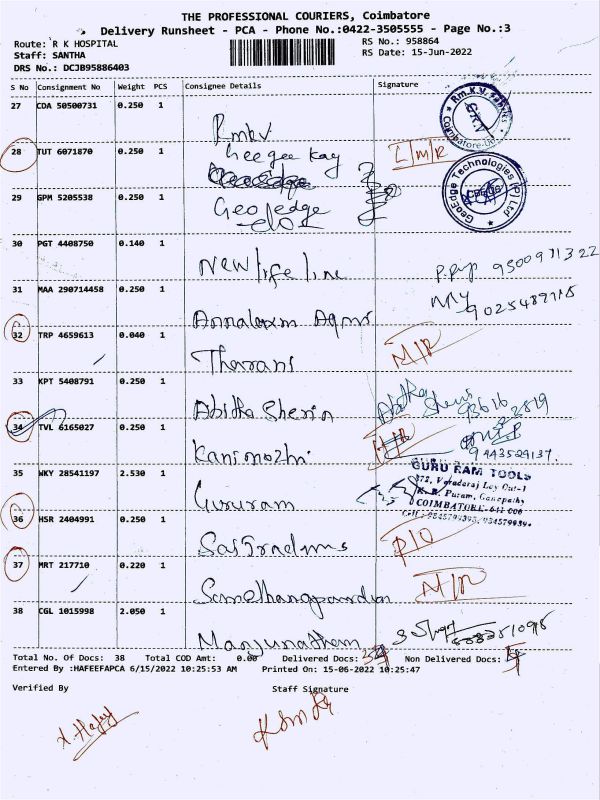 THE PROFESSIONAL COURIERS, Coimbatore
Delivery Runsheet - PCA - Phone No.:0422-3505555 - Page No.:3
Route: R K HOSPITAL
RS No.: 958864
Staff: SANTHA
RS Date: 15-Jun-2022
DRS No.: DCJB95886403
S No Consignment No Weight PCS Consignee Details Signature
27 CDA 50500731 0.250 1
Rmkv
28 TUT 6071870 0.250 1
Geegee Kay
29 GPM 5205538 0.250 1
Geoledge
30 PGT 4408750 0.140 1
New life line
31 MAA 290714458 0.250 1
32 TRP 4659613 0.040 1
Tharani
M/R
33 KPT 5408791 0.250 1
Abitha Sherin
34 TVL 6165027 0.250 1
Kanimozhi
9443529137.
35 WKY 28541197 2.530 1
Gururam
GURU RAM TOOLS
372, Varadaraj Lay Out-1
K. R. Puram, Ganapathy
COIMBATORE-641 006
36 HSR 2404991 0.250 1
37 MRT 217710 0.220 1
M/R
38 CGL 1015998 2.050 1
Manjunatham
Total No. Of Docs: 38 Total COD Amt: 0.00 Delivered Docs: Non Delivered Docs:
Entered By :HAFEEFAPCA 6/15/2022 10:25:53 AM Printed On: 15-06-2022 10:25:47
Verified By Staff Signature